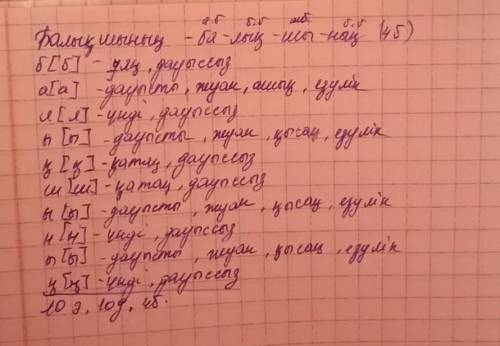 а.б б.б а.б б.б
Балықшының - ба-лық-шы-ның (4б)
б [б] - ұяң, дауыссыз
а [а] - дауысты, жуан, ашық, езулік
л [л] - үнді, дауыссыз
ы [ы] - дауысты, жуан, қысаң, езулік
қ [қ] - қатаң, дауыссыз
ш [ш] - қатаң, дауыссыз
ы [ы] - дауысты, жуан, қысаң, езулік
н [н] - үнді, дауыссыз
ы [ы] - дауысты, жуан, қысаң, езулік
ң [ң] - үнді, дауыссыз
10 ә, 10 д, 4б.